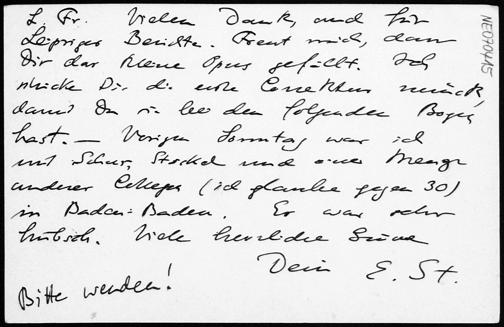 L. Fr. Vielen Dank, auch für
Leipziger Berichte. Freut mich, dass
Dir das kleine Opus gefällt. Ich
schicke Dir die erste Correktur zurück,
damit Du sie bei den folgenden Bogen
hast. — Vorigen Sonntag war ich
mit Schur, Stoeckel und einer Menge
anderer Collegen (ich glaube gegen 30)
in Baden-Baden. Es war sehr
hübsch. Viele herzliche Grüsse
Dein E. St.
Bitte wenden!
NE070415